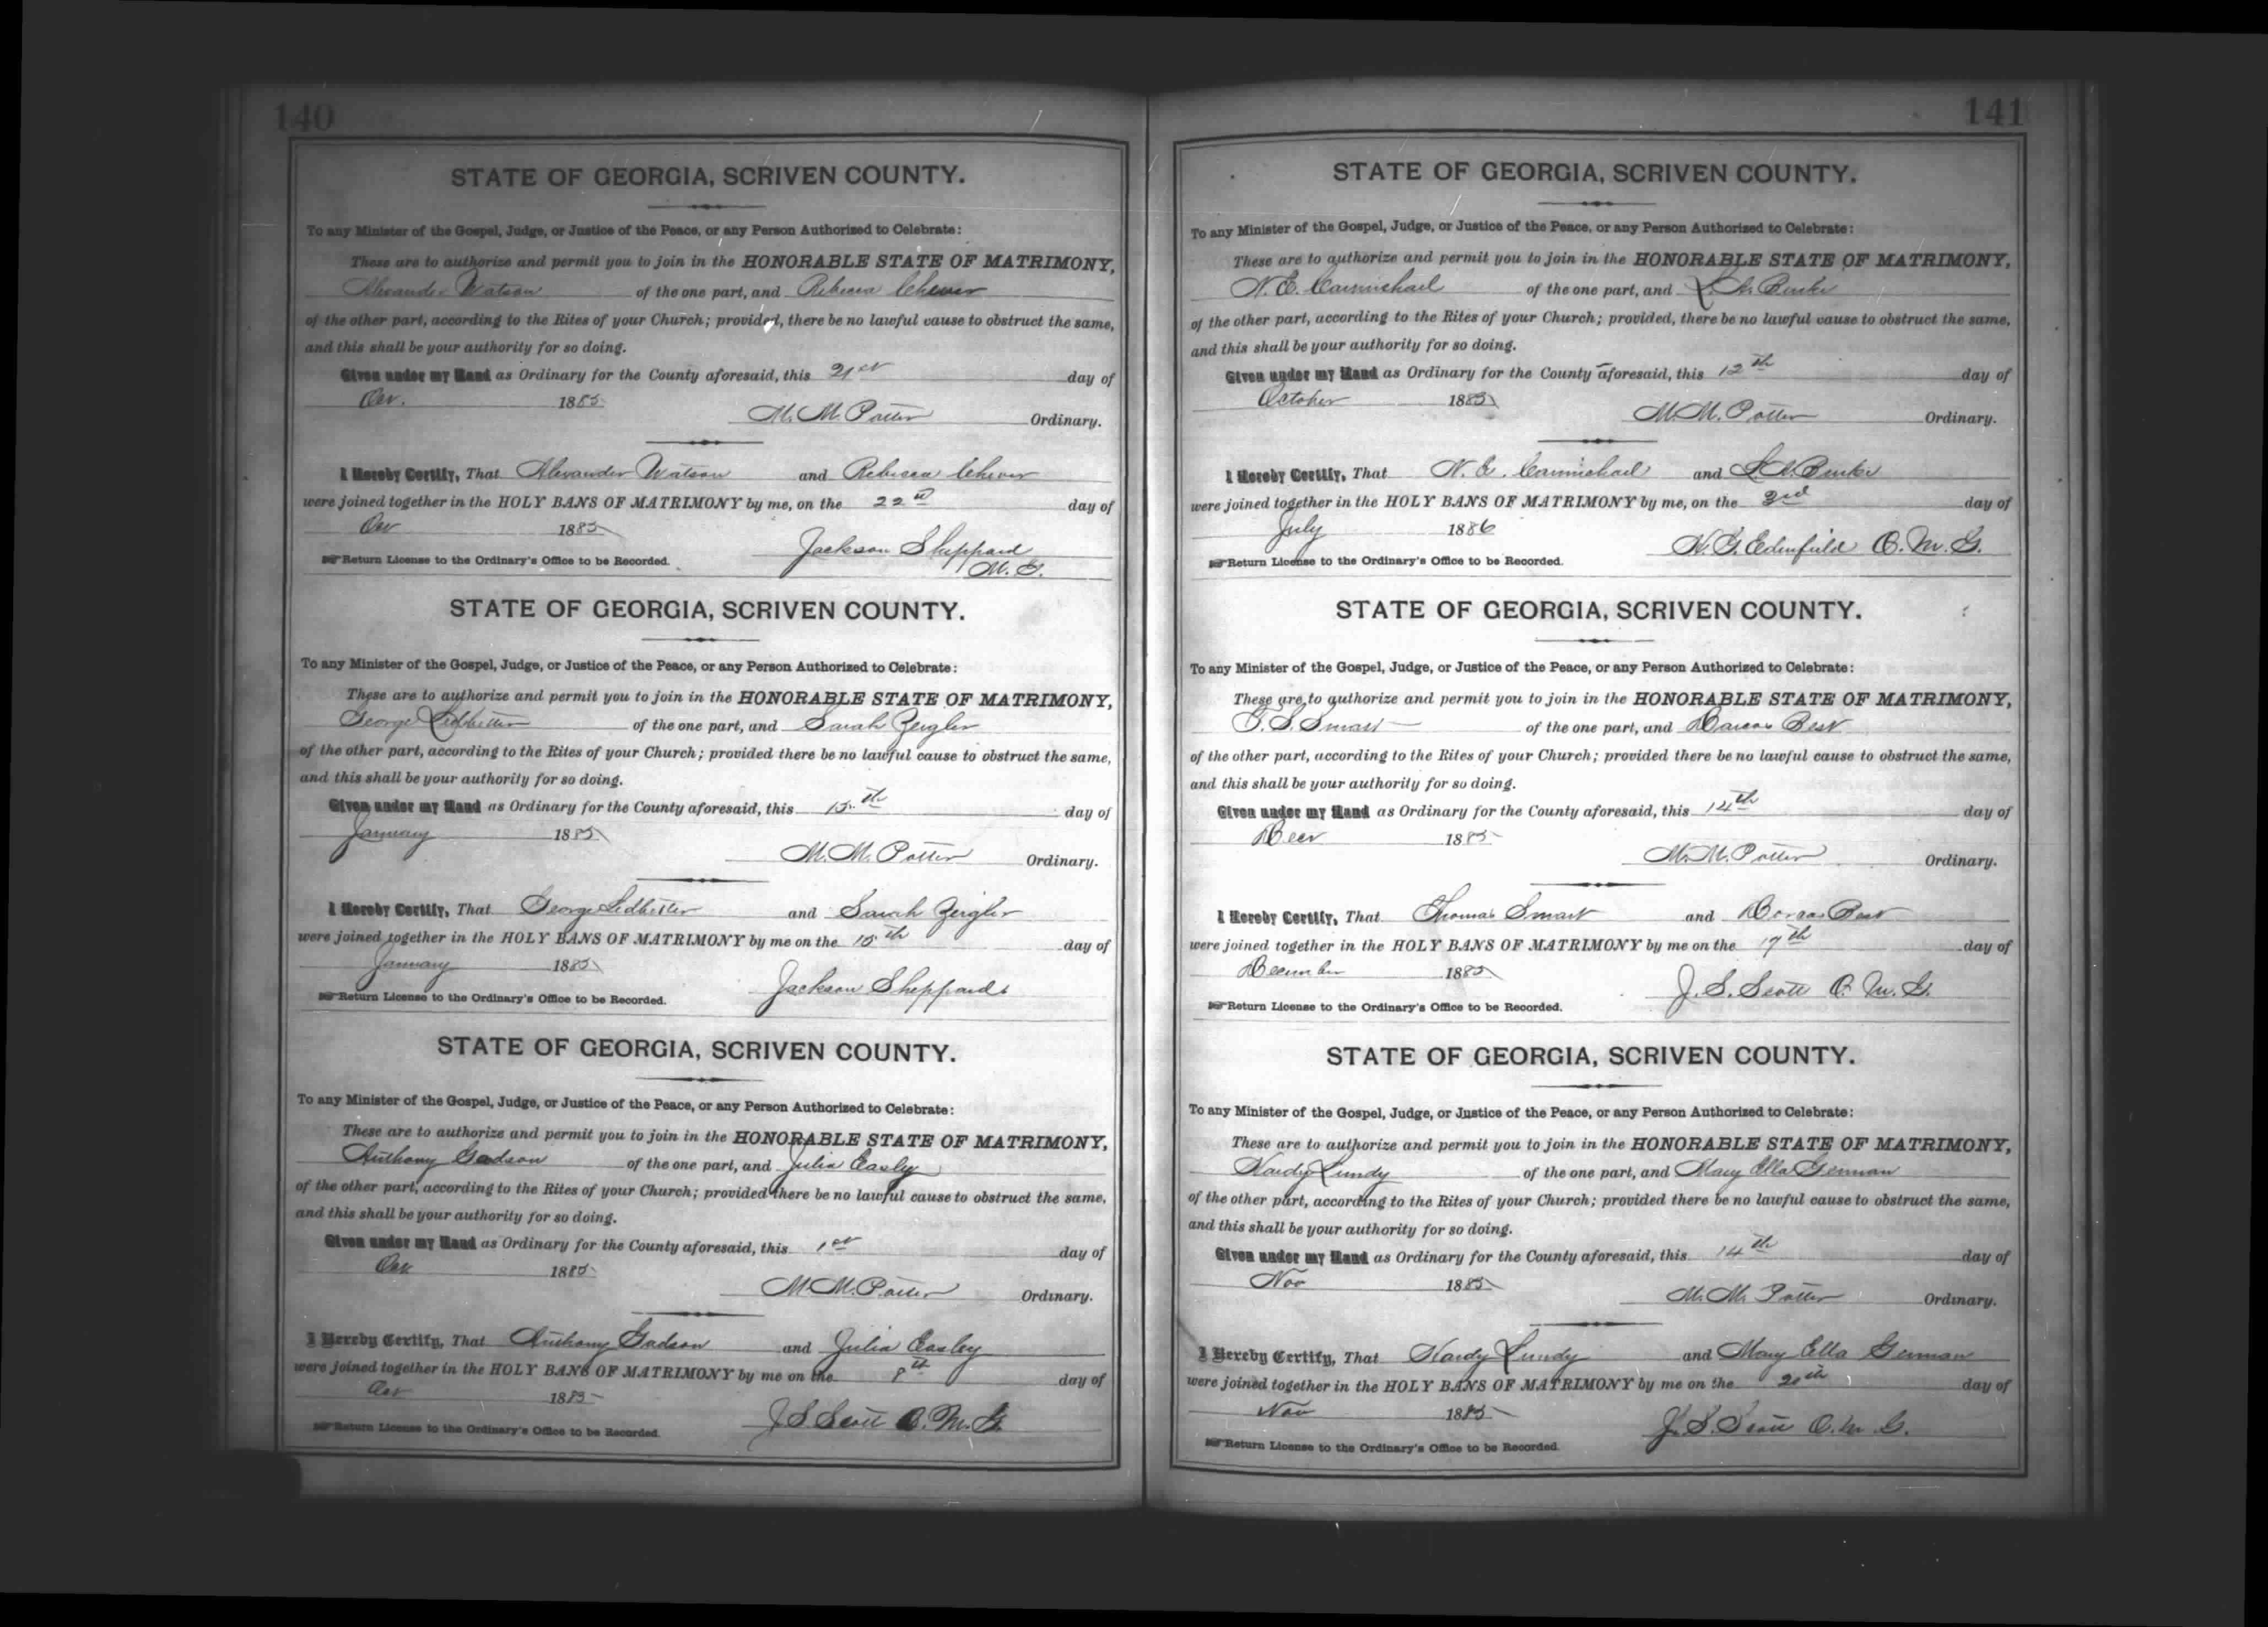 140
STATE OF GEORGIA, SCRIVEN COUNTY.
To any Minister of the Gospel, Judge, or Justice of the Peace, or any Person Authorized to Celebrate:
These are to authorize and permit you to join in the HONORABLE STATE OF MATRIMONY,
Alexander Watson of the one part, and Rebecca
of the other part, according to the Rites of your Church; provided, there be no lawful cause to obstruct the same,
and this shall be your authority for so doing.
Given under my Hand as Ordinary for the County aforesaid, this 21st day of
1885 M. M. Potter Ordinary.
I Hereby Certify, That Alexander Watson and Rebecca
were joined together in the HOLY BANS OF MATRIMONY by me, on the 22 day of
1885 Jackson Sheppard
Return License to the Ordinary's Office to be Recorded. M. G.
STATE OF GEORGIA, SCRIVEN COUNTY.
To any Minister of the Gospel, Judge, or Justice of the Peace, or any Person Authorized to Celebrate:
These are to authorize and permit you to join in the HONORABLE STATE OF MATRIMONY,
George Ledbetter of the one part, and Sarah Zeigler
of the other part, according to the Rites of your Church; provided there be no lawful cause to obstruct the same,
and this shall be your authority for so doing.
Given under my Hand as Ordinary for the County aforesaid, this 15th day of
January 1885 M. M. Potter Ordinary.
I Hereby Certify, That George Ledbetter and Sarah Zeigler
were joined together in the HOLY BANS OF MATRIMONY by me on the 15th day of
January 1885 Jackson Sheppard
Return License to the Ordinary's Office to be Recorded.
STATE OF GEORGIA, SCRIVEN COUNTY.
To any Minister of the Gospel, Judge, or Justice of the Peace, or any Person Authorized to Celebrate:
These are to authorize and permit you to join in the HONORABLE STATE OF MATRIMONY,
Anthony Gadson of the one part, and Julia Easley
of the other part, according to the Rites of your Church; provided there be no lawful cause to obstruct the same,
and this shall be your authority for so doing.
Given under my Hand as Ordinary for the County aforesaid, this 1st day of
1885 M. M. Potter Ordinary.
I Hereby Certify, That Anthony Gadson and Julia Easley
were joined together in the HOLY BANS OF MATRIMONY by me on the 8th day of
1885 J S Scott O. M. G.
Return License to the Ordinary's Office to be Recorded.
141
STATE OF GEORGIA, SCRIVEN COUNTY.
To any Minister of the Gospel, Judge, or Justice of the Peace, or any Person Authorized to Celebrate:
These are to authorize and permit you to join in the HONORABLE STATE OF MATRIMONY,
N. E. Carmichael of the one part, and Burke
of the other part, according to the Rites of your Church; provided, there be no lawful cause to obstruct the same,
and this shall be your authority for so doing.
Given under my Hand as Ordinary for the County aforesaid, this 12th day of
October 1885 M. M. Potter Ordinary.
I Hereby Certify, That N. E. Carmichael and Burke
were joined together in the HOLY BANS OF MATRIMONY by me, on the 3rd day of
July 1886 H. G. Edenfield O. M. G.
Return License to the Ordinary's Office to be Recorded.
STATE OF GEORGIA, SCRIVEN COUNTY.
To any Minister of the Gospel, Judge, or Justice of the Peace, or any Person Authorized to Celebrate:
These are to authorize and permit you to join in the HONORABLE STATE OF MATRIMONY,
T. S. Smart of the one part, and Dorcas Best
of the other part, according to the Rites of your Church; provided there be no lawful cause to obstruct the same,
and this shall be your authority for so doing.
Given under my Hand as Ordinary for the County aforesaid, this 14th day of
Decr 1885 M. M. Potter Ordinary.
I Hereby Certify, That Thomas Smart and Dorcas Best
were joined together in the HOLY BANS OF MATRIMONY by me on the 17th day of
December 1885 J. S. Scott O. M. G.
Return License to the Ordinary's Office to be Recorded.
STATE OF GEORGIA, SCRIVEN COUNTY.
To any Minister of the Gospel, Judge, or Justice of the Peace, or any Person Authorized to Celebrate:
These are to authorize and permit you to join in the HONORABLE STATE OF MATRIMONY,
Hardy Lundy of the one part, and Mary Ella German
of the other part, according to the Rites of your Church; provided there be no lawful cause to obstruct the same,
and this shall be your authority for so doing.
Given under my Hand as Ordinary for the County aforesaid, this 14th day of
Nov 1885 M. M. Potter Ordinary.
I Hereby Certify, That Hardy Lundy and Mary Ella German
were joined together in the HOLY BANS OF MATRIMONY by me on the 20th day of
Nov 1885 J. S. Scott O. M. G.
Return License to the Ordinary's Office to be Recorded.